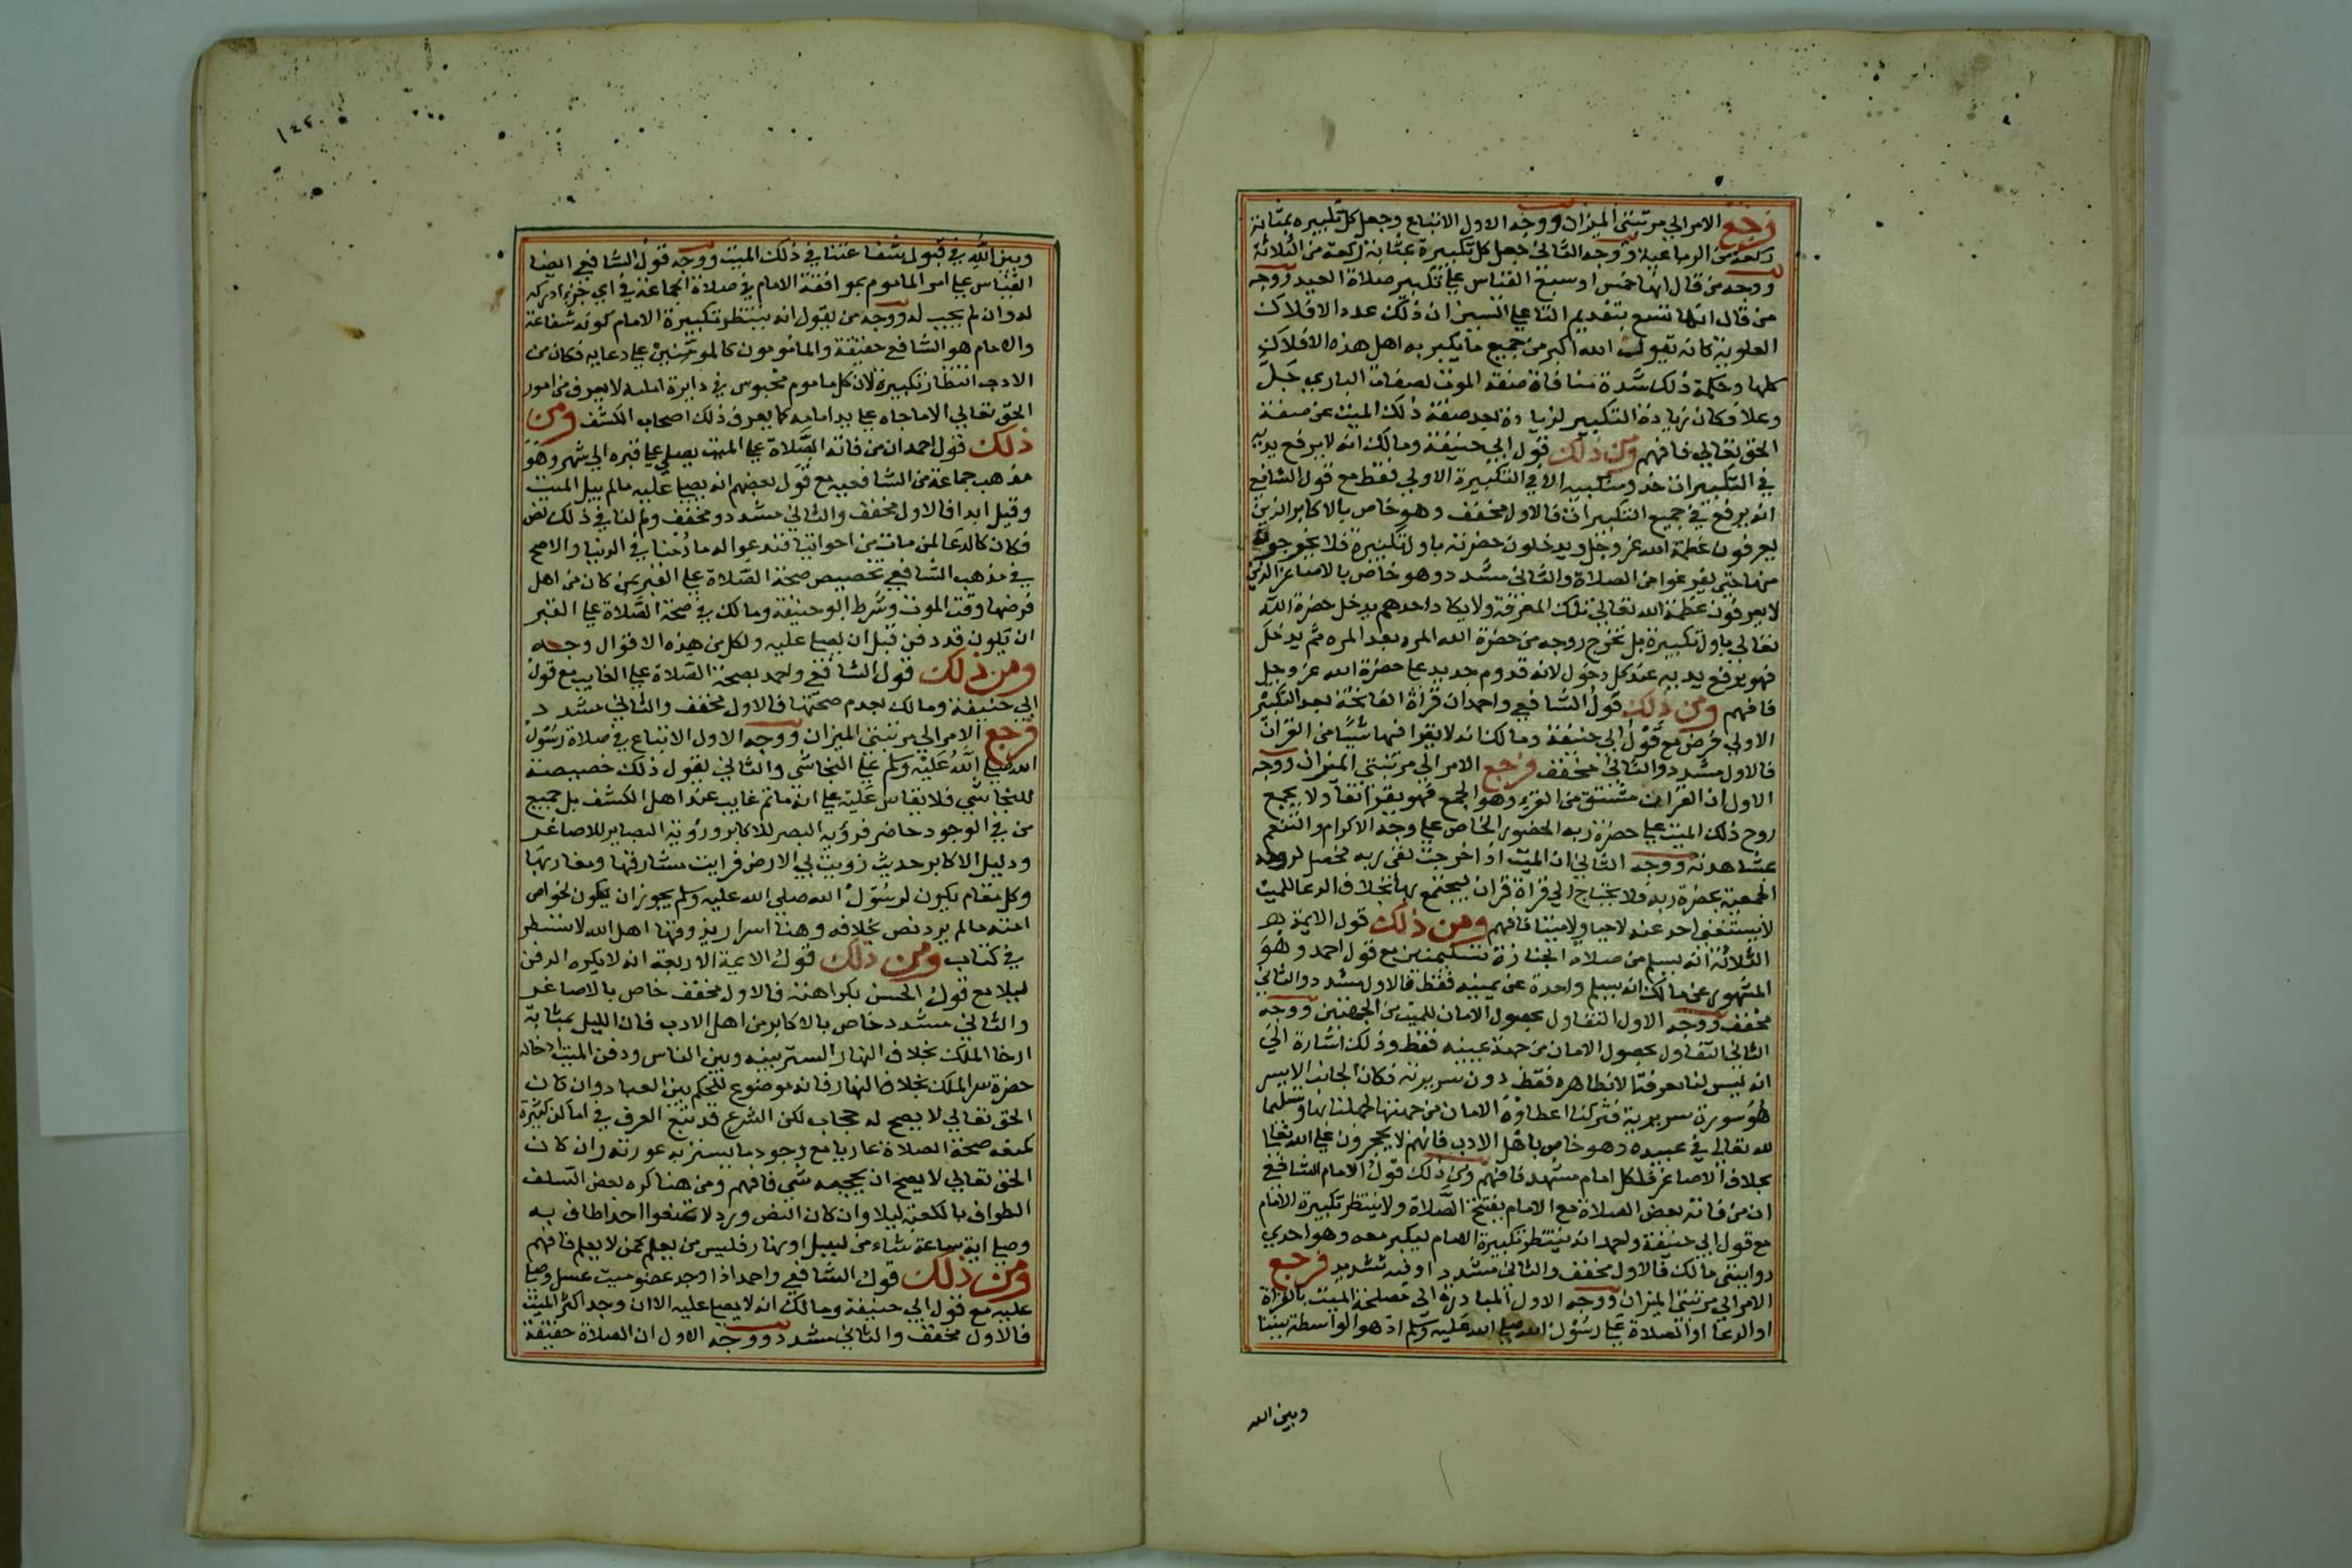 فرجع الامر الي مرتبتي الميزان ووجه الاول الاتباع وجعل كل تكبيره بمثابة
ركعة من الرباعية ووجه الثاني جعل كل تكبيرة بمثابة ركعة من الثلاثة
ووجه من قال انها خمس او سبع القياس علي تكبير صلاة العيد ووجه
من قال انها تسع بتقديم التا علي السين ان ذلك عدد الافلاك
العلوية كانه يقول الله اكبر من جميع ما يكبر به اهل هذه الافلاك
كلها وحكمة ذلك شدة منافاة صفة الموت لصفات الباري جل
وعلا فكان زيادة التكبير لزيادة بعد صفة ذلك الميت عن صفة
الحق تعالي فافهم ومن ذلك قول ابي حنيفة ومالك انه لا يرفع يديه
في التكبيرات حذو منكبيه الا في التكبيرة الاولي فقط مع قول الشافعي
انه يرفع في جميع التكبيرات فالاول مخفف وهو خاص بالاكابر الذين
يعرفون عظمة الله عز وجل ويدخلون حضرته باول تكبيرة فلا يخرجون
منها حتي يفرغوا من الصلاة والثاني مشدد وهو خاص بالاصاغر الذين
لا يعرفون عظمة الله تعالي تلك المعرفة ولا يكاد احدهم يدخل حضرة الله
تعالي باول تكبيرة بل تخرج روحه من حضرة الله المره بعد المره ثم يدخل
فهو يرفع يديه عند كل دخول لانه قدوم جديد علي حضرة الله عز وجل
فافهم ومن ذلك قول الشافعي واحمد ان قراة الفاتحة بعد التكبيرة
الاولي فرض مع قول ابي حنيفة ومالك انه لا يقرا فيها شيا من القران
فالاول مشدد والثاني مخفف فرجع الامر الي مرتبتي الميزان ووجه
الاول ان القران مشتق من القرء وهو الجمع فهو يقرا تفاولا بجمع
روح ذلك الميت علي حضرة ربه الحضور الخاص علي وجه الاكرام والتنعم
بمشاهدته ووجه الثاني ان الميت اذا خرجت لقي ربه فحصل لروحه
الجمعية بحضرة ربه فلا يحتاج الي قراة قران ليجتمع بها بخلاف الدعا للميت
لا يستغني احد عنه لا حيا ولا ميتا فافهم ومن ذلك قول الايمة
الثلاثة انه يسلم من صلاة الجنازة تسليمتين مع قول احمد وهو
المشهور عن مالك انه يسلم واحدة عن يمينه فقط فالاول مشدد والثاني
مخفف ووجه الاول التفاول بحصول الامان للميت من الجهتين ووجه
الثاني التفاول بحصول الامان من جهة يمينه فقط وذلك اشارة الي
انه ليس لنا معرفة الا بظاهره فقط دون سريرته فكان الجانب الايسر
هو سورة سريرية فتركنا اعطاؤه الامان من جهتها لجهلنا بها وتسليما
لله تعالي في عبيده وهو خاص باهل الادب فانهم لا يحجرون علي الله تعالي
بخلاف الاصاغر فلكل امام مشهد فافهم ومن ذلك قول الامام الشافعي
ان من فاته بعض الصلاة مع الامام يفتتح الصلاة ولا ينتظر تكبيرة الامام
مع قول ابي حنيفة واحمد انه ينتظر تكبيرة الامام ليكبر معه وهو احدي
روايتي مالك فالاول مخفف والثاني مشدد او فيه تشديد فرجع
الامر الي مرتبتي الميزان ووجه الاول المبادرة الي مصلحة الميت بالقراة
او الدعا او الصلاة علي رسول الله صلي الله عليه وسلم اذ هو الواسطة بيننا
وبين الله
١٤٢
وبين الله في قبول شفاعتنا في ذلك الميت ووجه قول الشافعي ايضا
القياس علي امر الماموم بموافقة الامام في صلاة الجماعة في اي جزء ادركه
له وان لم يحسب له ووجه من يقول انه ينتظر تكبيرة الامام كونه شفاعة
والامام هو الشافع حقيقة والمامومون كالمومنين علي دعايه فكان من
الادب انتظار تكبيرة لان كل ماموم محبوس في دايرة امامه لا يعرف من امور
الحق تعالي الا ما جاه علي يد امامه كما يعرف ذلك اصحاب الكشف ومن
ذلك قول احمد ان من فاته الصلاة علي الميت يصلي علي قبره الي شهر وهو
مذهب جماعة من الشافعيه مع قول بعضهم انه يصلي عليه ما لم يبل الميت
وقيل ابدا فالاول مخفف والثاني مشدد ومخفف ولم لنا في ذلك نص
فكان كالدعا لمن مات من اخواننا فندعوا له ما دمنا في الدنيا والاصح
في مذهب الشافعي تخصيص صحة الصلاة علي القبر بمن كان من اهل
فرضها وقت الموت وشرط ابو حنيفة ومالك في صحة الصلاة علي القبر
ان يكون قد دفن قبل ان يصلي عليه ولكل من هذه الاقوال وجه
ومن ذلك قول الشافعي واحمد بصحة الصلاة علي الغايب مع قول
ابي حنيفة ومالك بعدم صحتها فالاول مخفف والثاني مشدد
فرجع الامر الي مرتبتي الميزان ووجه الاول الاتباع في صلاة رسول
الله صلي الله عليه وسلم علي النجاشي والثاني يقول ذلك خصيصة
للنجاشي فلا يقاس عليه علي انه ما ثم غايب عند اهل الكشف بل جميع
من في الوجود حاضر فرؤية البصر للاكابر ورؤية البصاير للاصاغر
ودليل الاكابر حديث زويت لي الارض فرايت مشارقها ومغاربها
وكل مقام يكون لرسول الله صلي الله عليه وسلم يجوز ان يكون لخواص
امته ما لم يرد نص بخلافه وهنا اسرار يذوقها اهل الله لا تسطر
في كتاب ومن ذلك قول الايمة الاربعة انه لا يكره الدفن
ليلا مع قول الحسن بكراهته فالاول مخفف خاص بالاصاغر
والثاني مشدد خاص بالاكابر من اهل الادب فان الليل بمثابة
ارخا الملك بخلاف النهار الستر بينه وبين الناس ودفن الميت ادخاله
حضرة سر الملك بخلاف النهار فانه موضوع للتحكم بين العباد وان كان
الحق تعالي لا يصح له حجاب لكن الشرع قد تتبع العرف في اماكن كثيرة
كمنعه صحة الصلاة عاريا مع وجود ما يستر به عورته وان كان
الحق تعالي لا يصح ان يحجبه شي فافهم ومن هنا كره بعض السلف
الطواف بالكعبة ليلا وان كان النص ورد لا تمنعوا احدا طاف به
وصلي اية ساعة شاء من ليل او نهار فليس من يعلم كمن لا يعلم فافهم
ومن ذلك قول الشافعي واحمد اذا وجد عضو ميت غسل وصلي
عليه مع قول ابي حنيفة ومالك انه لا يصلي عليه الا ان وجد اكثر الميت
فالاول مخفف والثاني مشدد ووجه الاول ان الصلاة حقيقة